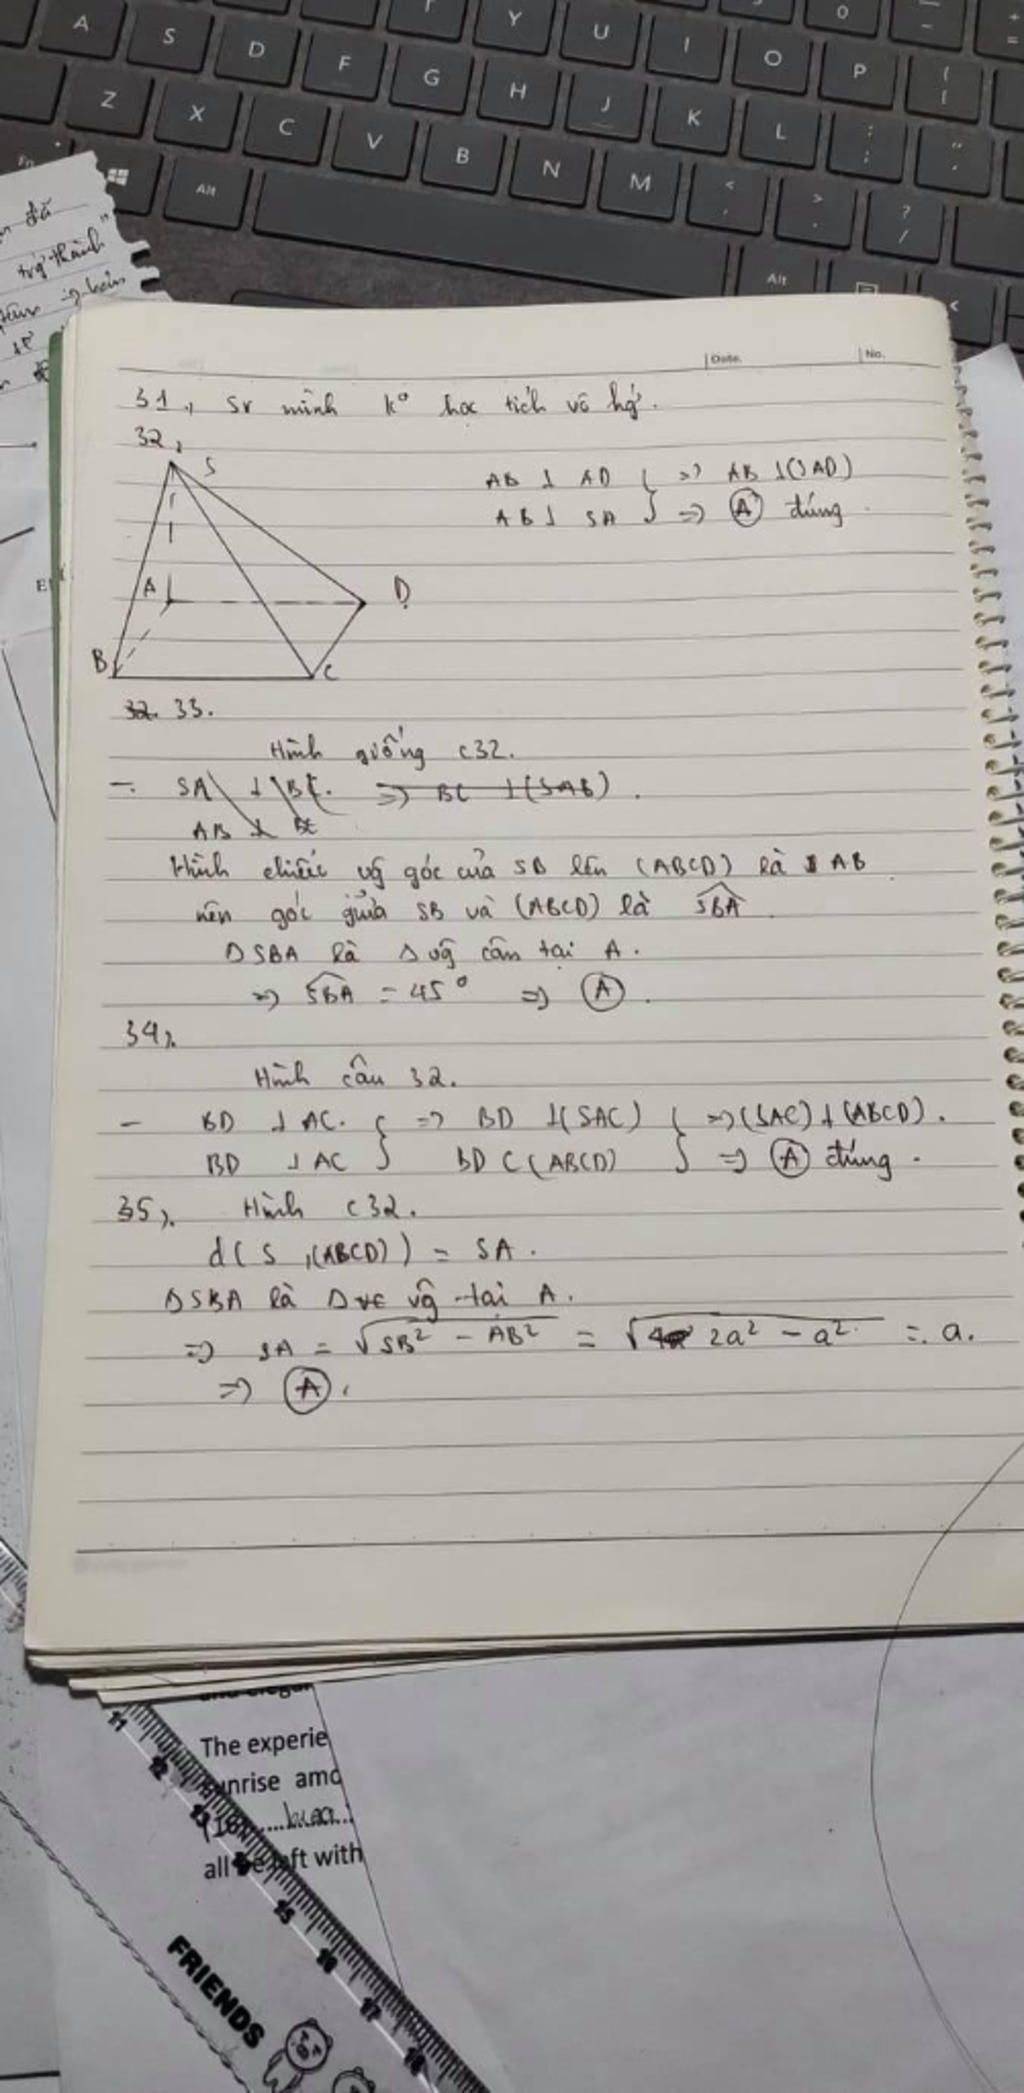 A S D F G H J K L
Y U I O P
Z X C V B N M
Fn Alt Alt
đã
trở thành"
Date. No.
31, Sr mình k° học tích vô hg'.
32,
S
AB ⊥ AD } => AB ⊥ (SAD)
AB ⊥ SA } => Ⓐ đúng.
A D
B C
33.
Hình giống c32.
- SA ⊥ BC. => BC ⊥ (SAB).
AB ⊥ BC
Hình chiếu vg góc của SB lên (ABCD) là AB
nên góc giữa SB và (ABCD) là SBA
Δ SBA là Δ vg cân tại A.
=> SBA = 45° => Ⓐ.
34,
Hình câu 32.
- BD ⊥ AC. } => BD ⊥ (SAC) } => (SAC) ⊥ (ABCD).
BD ⊥ AC } BD ⊂ (ABCD) } => Ⓐ đúng.
35, Hình c32.
d(S, (ABCD)) = SA.
Δ SBA là Δ vg tại A.
=> SA = √SB² - AB² = √2a² - a² = a.
=> Ⓐ.
The experie
unrise amo
all be left with
11 12 13 15 16 17 18
FRIENDS